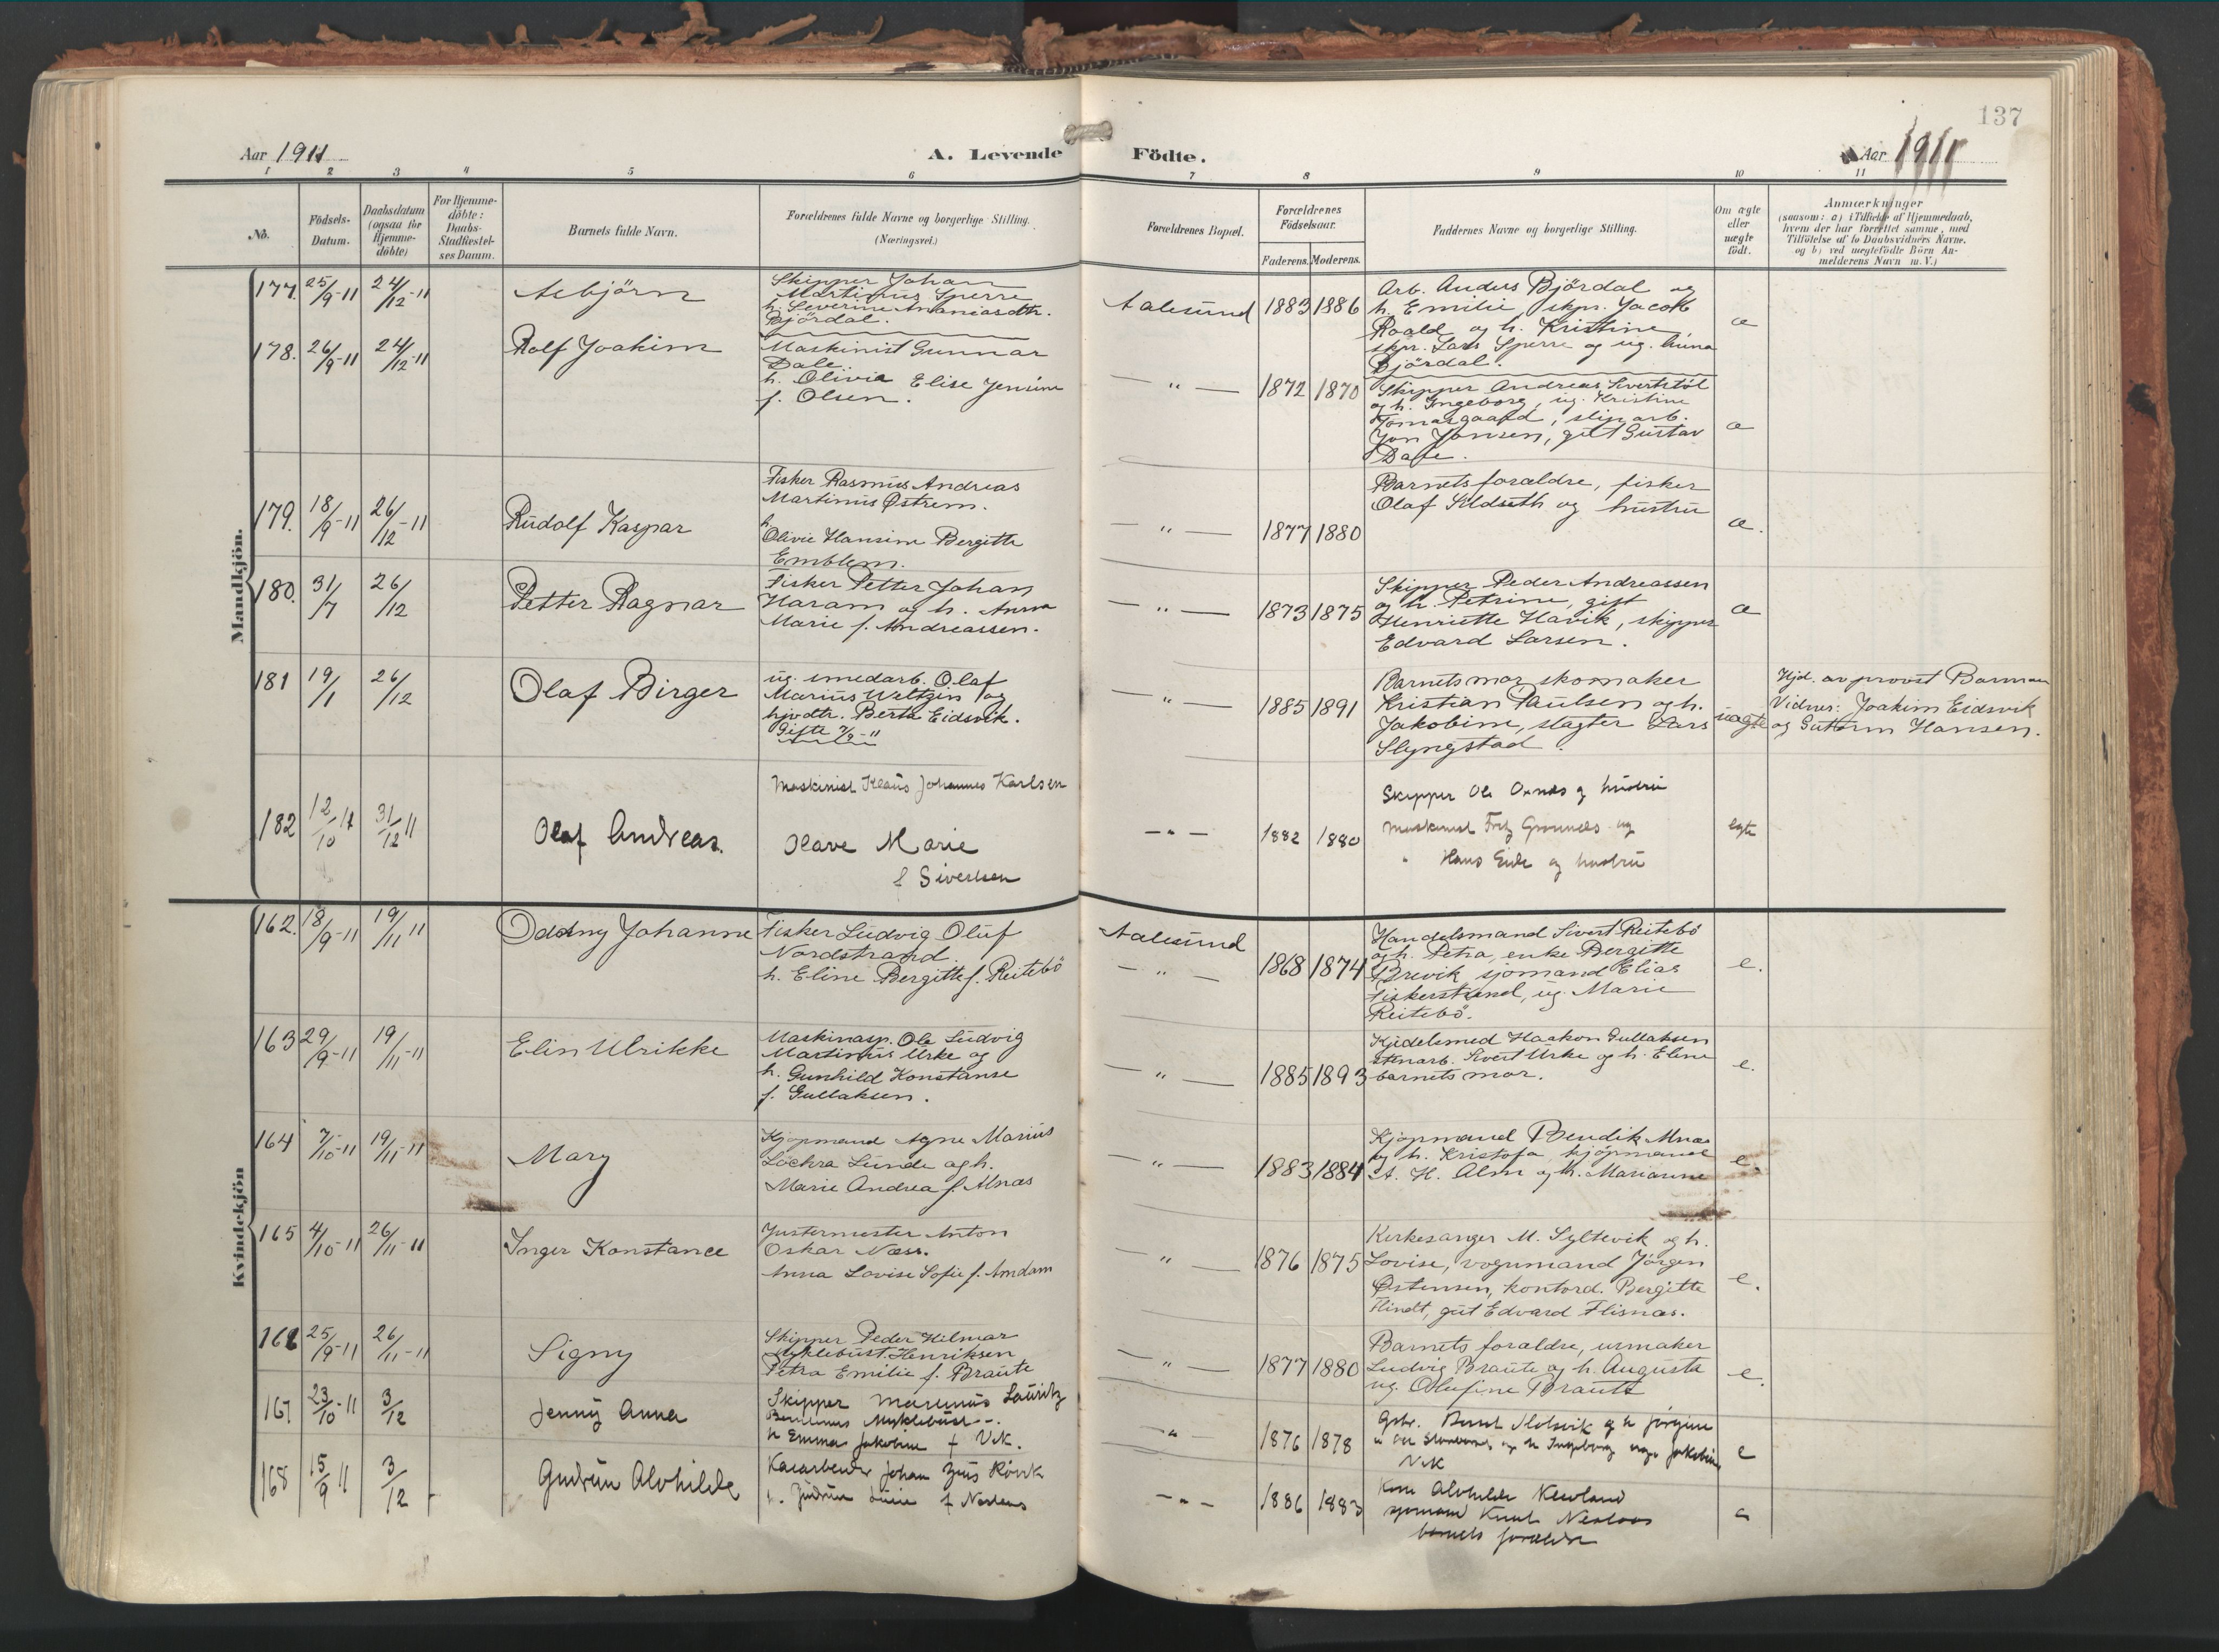 137
Aar 1911
A. Levende Födte.
Aar 1911
1 2 3 4 5 6 7 8 9 10 11
No.
Födsels-Datum.
Daabsdatum (ogsaa for Hjemme-döbte)
For Hjemme-döbte: Daabs-Stadfæstel-ses Datum.
Barnets fulde Navn.
Forældrenes fulde Navne og borgerlige Stilling.
(Næringsvei.)
Forældrenes Bopæl.
Forældrenes Födselsaar.
Faderens. Moderens.
Faddernes Navne og borgerlige Stilling.
Om ægte eller uægte födt.
Anmærkninger
(saasom: a) i Tilfælde af Hjemmedaab,
hvem der har forrettet samme, med
Tilföielse af to Daabsvidners Navne.
og b) ved uægtefödte Börn An-
melderens Navn m. V.)
Mandkjön.
177. 25/9-11 24/12-11 Asbjörn
Skipper Johan
Martinus Sperre
h. Severine Ananiasdtr.
Björdal.
Aalesund 1883 1886
Arb. Anders Björdal og
h. Emilie, skpr. Jacob
Roald og h. Kristine,
skpr. Lars Sperre og ug. Anna
Björdal.
æ
178. 26/9-11 24/12-11 Rolf Joakim
Maskinist Gunnar
Dale
h. Olivia Elise Jensine
f. Olsen.
— " — 1872 1870
Skipper Andreas
og h. Ingeborg, ug. Kristine
arb.
Jon Jansen, gift Gustav
Dale.
æ
179. 18/9-11 26/12-11 Rudolf Kaspar
Fisker Rasmus Andreas
Martinus Østrem.
h
Olivie Hansine Bergitte
Emblem.
— " — 1877 1880
Barnets forældre, fisker
Olaf Sildseth og hustru
æ.
180. 31/7 26/12 Petter Ragnar
Fisker Petter Johan
Haram og h. Anna
Marie f. Andreassen.
— " — 1873 1875
Skipper Peder Andreassen
og h. Petrine, gift
Henriette Havik, skipper
Edvard Larsen.
æ
181 19/1 26/12 Olaf Birger
ug. smedarb. Olaf
Marius Weltzin og
hjvdtr. Berta Eidsvik.
— " — 1885 1891
Barnets mor, skomaker
Kristian Paulsen og h.
Jakobine, slagter Lars
Slyngstad.
uægte
Hjd. av provst Barman
Vidner: Joakim Eidsvik
og Guttorm Hansen.
182 12/10 11 31/12 11 Olaf Andreas.
Maskinist Klaus Johannes Karlsen
Olave Marie
f Sivertsen
— " — 1882 1880
Skipper Ole Oxnes og hustru
Maskinist og
" Hans Eide og hustru
egte
Kvindekjön
162. 18/9-11 19/11 11 Oddny Johanne
Fisker Ludvig Oluf
Nordstrand
h. Eline Bergitte f. Reitebö
Aalesund
— " — 1868 1874
Handelsmand Sivert Reitebö
og h. Petra, enke Bergitte
Brevik, sjömand Elias
Fiskerstrand, ug. Marie
Reitebö.
e.
163 29/9-11 19/11-11 Elin Ulrikke
Maskinasp. Ole Ludvig
Martinus Urke og
h. Gunhild Konstanse
f. Gullaksen.
— " — 1885 1893
Kjedelsmed Haakon Gullaksen
stenarb. Sivert Urke og h. Eline
barnets mor.
e.
164 7/10-11 19/11-11 Mary
Kjøpmand Agne Marius
Lochra Lunde og h.
Marie Andrea f. Alnæs
— " — 1883 1884
Kjøpmand Bendik Alnæs
og h. Kristofa, kjøpmand
A. H. Alm og h. Marianne
e.
165 4/10-11 26/11-11 Inger Konstance
Justermester Anton
Oskar Næss.
Anna Lovise Sofie f. Amdam
— " — 1876 1875
Kirkesanger M. Syltevik og h.
Lovise, vognmand Jörgen
Østensen, kontord. Bergitte
Flindt, gift Edvard Flisnæs.
e.
166 25/9-11 26/11-11 Signy
Skipper Peder Hilmar
Myklebust Henriksen
Petra Emilie f. Braute
— " — 1877 1880
Barnets forældre, urmaker
Ludvig Braute og h. Augusta
ug. Olufine Braute
e.
167 23/10-11 3/12 Jenny Anna
Skipper Martinus Lauritz
Myklebust
h Emma Jakobine f Vik.
— " — 1876 1878
og h Jörgine
og h Ingeborg Jakobine
Vik
e
168 15/9 11 3/12 Gudrun Alvhilde
Kaiarbeider Johan
f
— " — 1886 1883
Alvhilde
Knut
barnets forældre
e